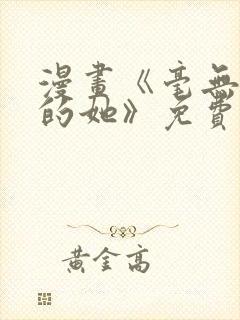 漫畫《毫無
的她》免費
黃金高